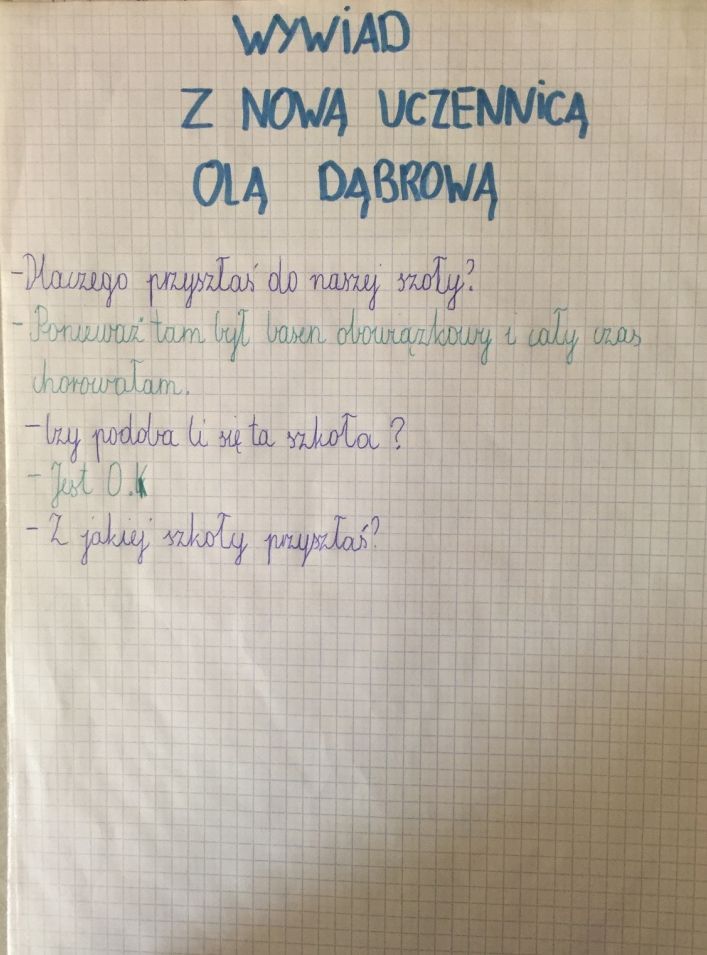 WYWiAD
Z NOWĄ UCZENNiCĄ
OLĄ DĄBROWĄ
-Dlaczego przyszłaś do naszej szoły?
- Ponieważ tam był basen obowiązkowy i cały czas
chorowałam.
- Czy podoba Ci się ta szkoła ?
- Jest O.K
- Z jakiej szkoły przyszłaś?